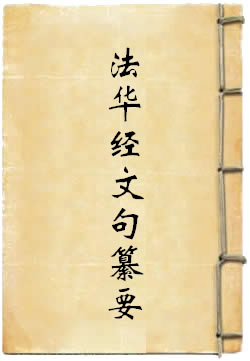 法华经文句纂要